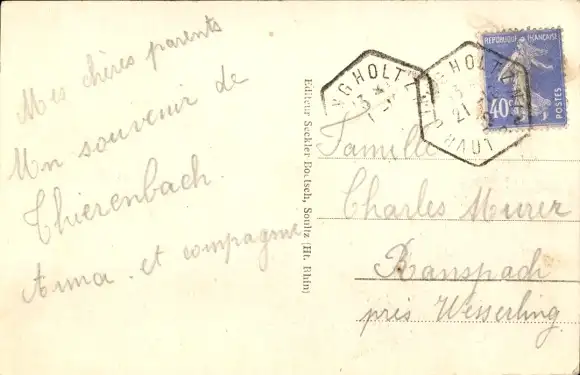 Mes chères parents
Un souvenir de
Thierenbach.
Anna et compagnie
Editeur Seckler Boetsch, Soultz (Ht. Rhin)
GHOLTZ
13
GHOLTZ
13
21
HAUT
REPUBLIQUE FRANÇAISE
40c
POSTES
Famille
Charles Murer
Ranspach
près Wesserling